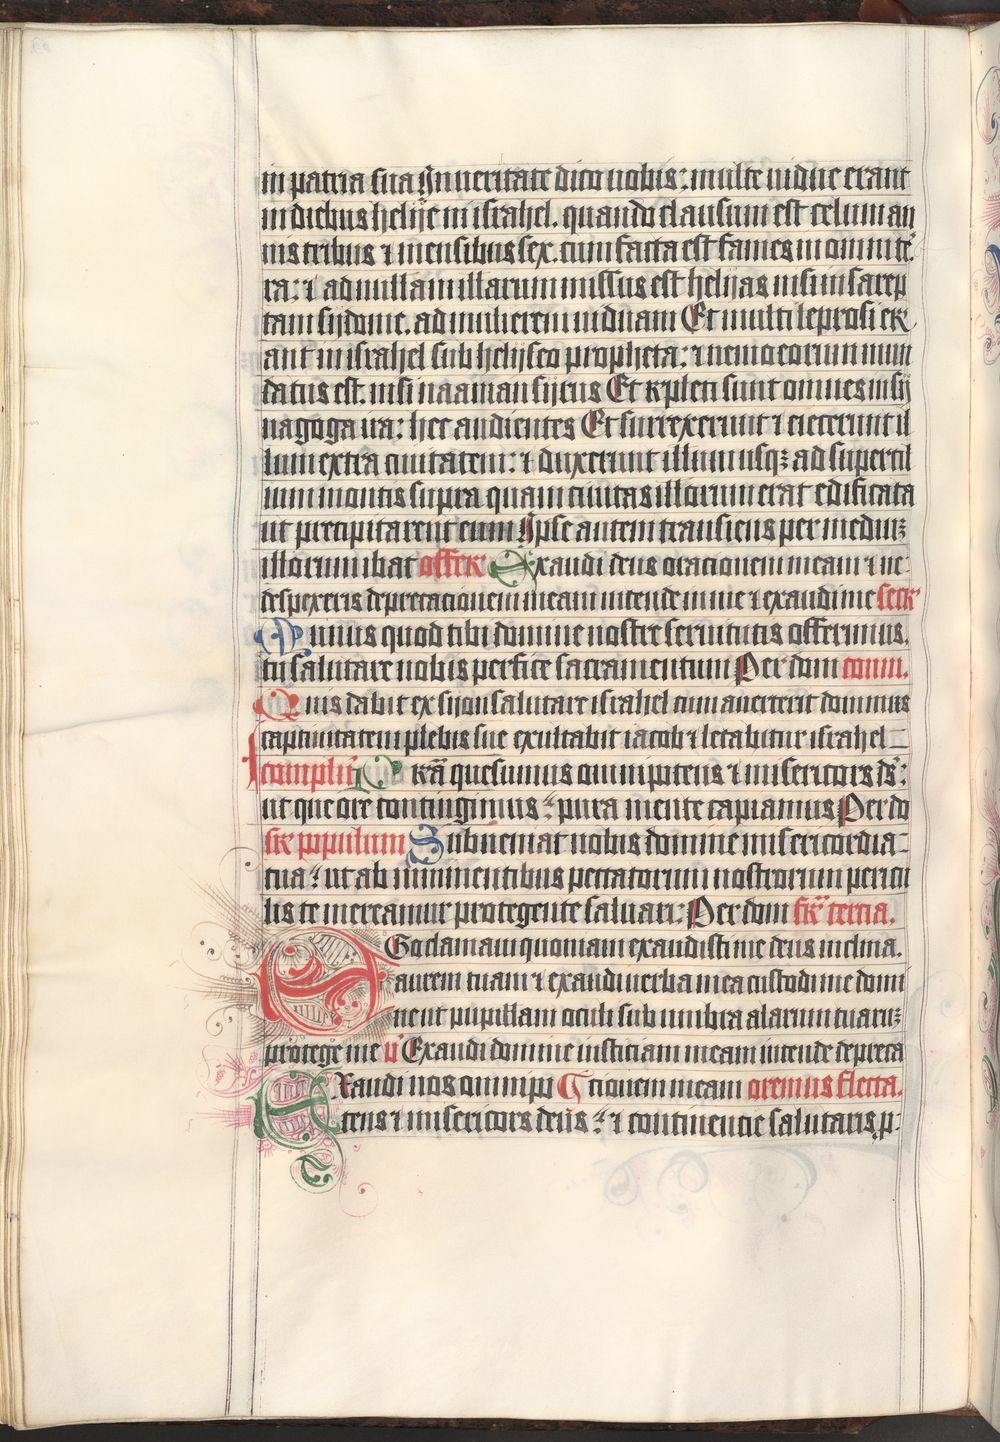 in patria sua In veritate dico vobis: multe vidue erant
in diebus helije in israhel. quando clausum est celum an
nis tribus ⁊ mensibus sex. cum facta est fames in omni ter̉
ra: ⁊ ad nullam illarum missus est helijas nisi in sarep
tam sijdonie. ad mulierem viduam Et multi leprosi er
ant in israhel sub helijseo propheta: ⁊ nemo eorum mun
datus est. nisi naaman sijrus Et repleti sunt omnes in sij
nagoga ira: hec audientes Et surrexerunt ⁊ eiecerunt il
lum extra civitatem: ⁊ duxerunt illum usqꝫ ad supercil
ium montis supra quam civitas illorum erat edificata
ut precipitarent eum Ipse autem transiens per mediuꝫ
illorum ibat offer Exaudi deus orationem meam ⁊ ne
despexeris deprecationem meam intende in me ⁊ exaudi me secr
Munus quod tibi domine nostre servitutis offerimus.
tu salutare nobis perfice sacramentum Per dom com̄.
Quis dabit ex sijon salutare israhel cum averterit dominus
captivitatem plebis sue exultabit iacob ⁊ letabitur israhel
complīr Pr̄a quesumus omnipotens ⁊ misericors ds̄:
ut que ore contingimus: pura mente capiamus Per do
sr̄ populum Subveniat nobis domine misericordia
tua: ut ab imminentibus peccatorum nostrorum pericu
lis te mereamur protegente salvari: Per dom fr̄ tercia.
EGo clamavi quoniam exaudisti me deus inclina.
aurem tuam ⁊ exaudi verba mea custodi me domi
ne ut pupillam oculi sub umbra alarum tuaruꝫ
protege me v̄ Exaudi domine iusticiam meam intende depreca
EXaudi nos omnipo ⸿ tionem meam oremus flecta.
tens ⁊ misericors deus: ⁊ continentie salutaris p